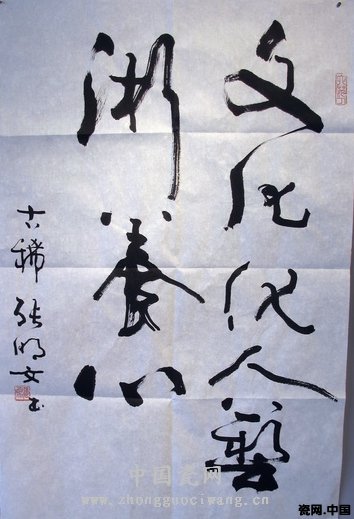 文化化人藝
術養心
古稀 张明文书
中国瓷网
www.zhongguociwang.cn
瓷网.中国